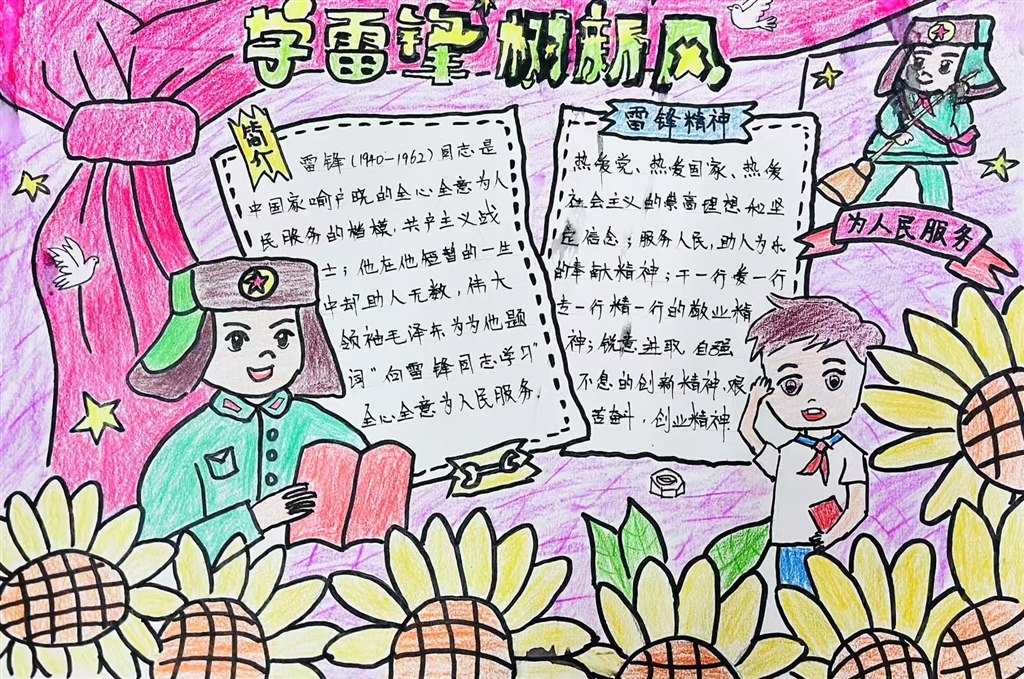 学雷锋 树新风
简介
雷锋(1940-1962)同志是
中国家喻户晓的全心全意为人
民服务的楷模,共产主义战
士;他在他短暂的一生
中却助人无数,伟大
领袖毛泽东为为他题
词“向雷锋同志学习”
全心全意为人民服务.
雷锋精神
热爱党、热爱国家、热爱
社会主义的崇高理想和坚
定信念;服务人民,助人为乐
的奉献精神;干一行爱一行
专一行精一行的敬业精
神;锐意进取 自强
不息的创新精神,艰
苦奋斗,创业精神
为人民服务